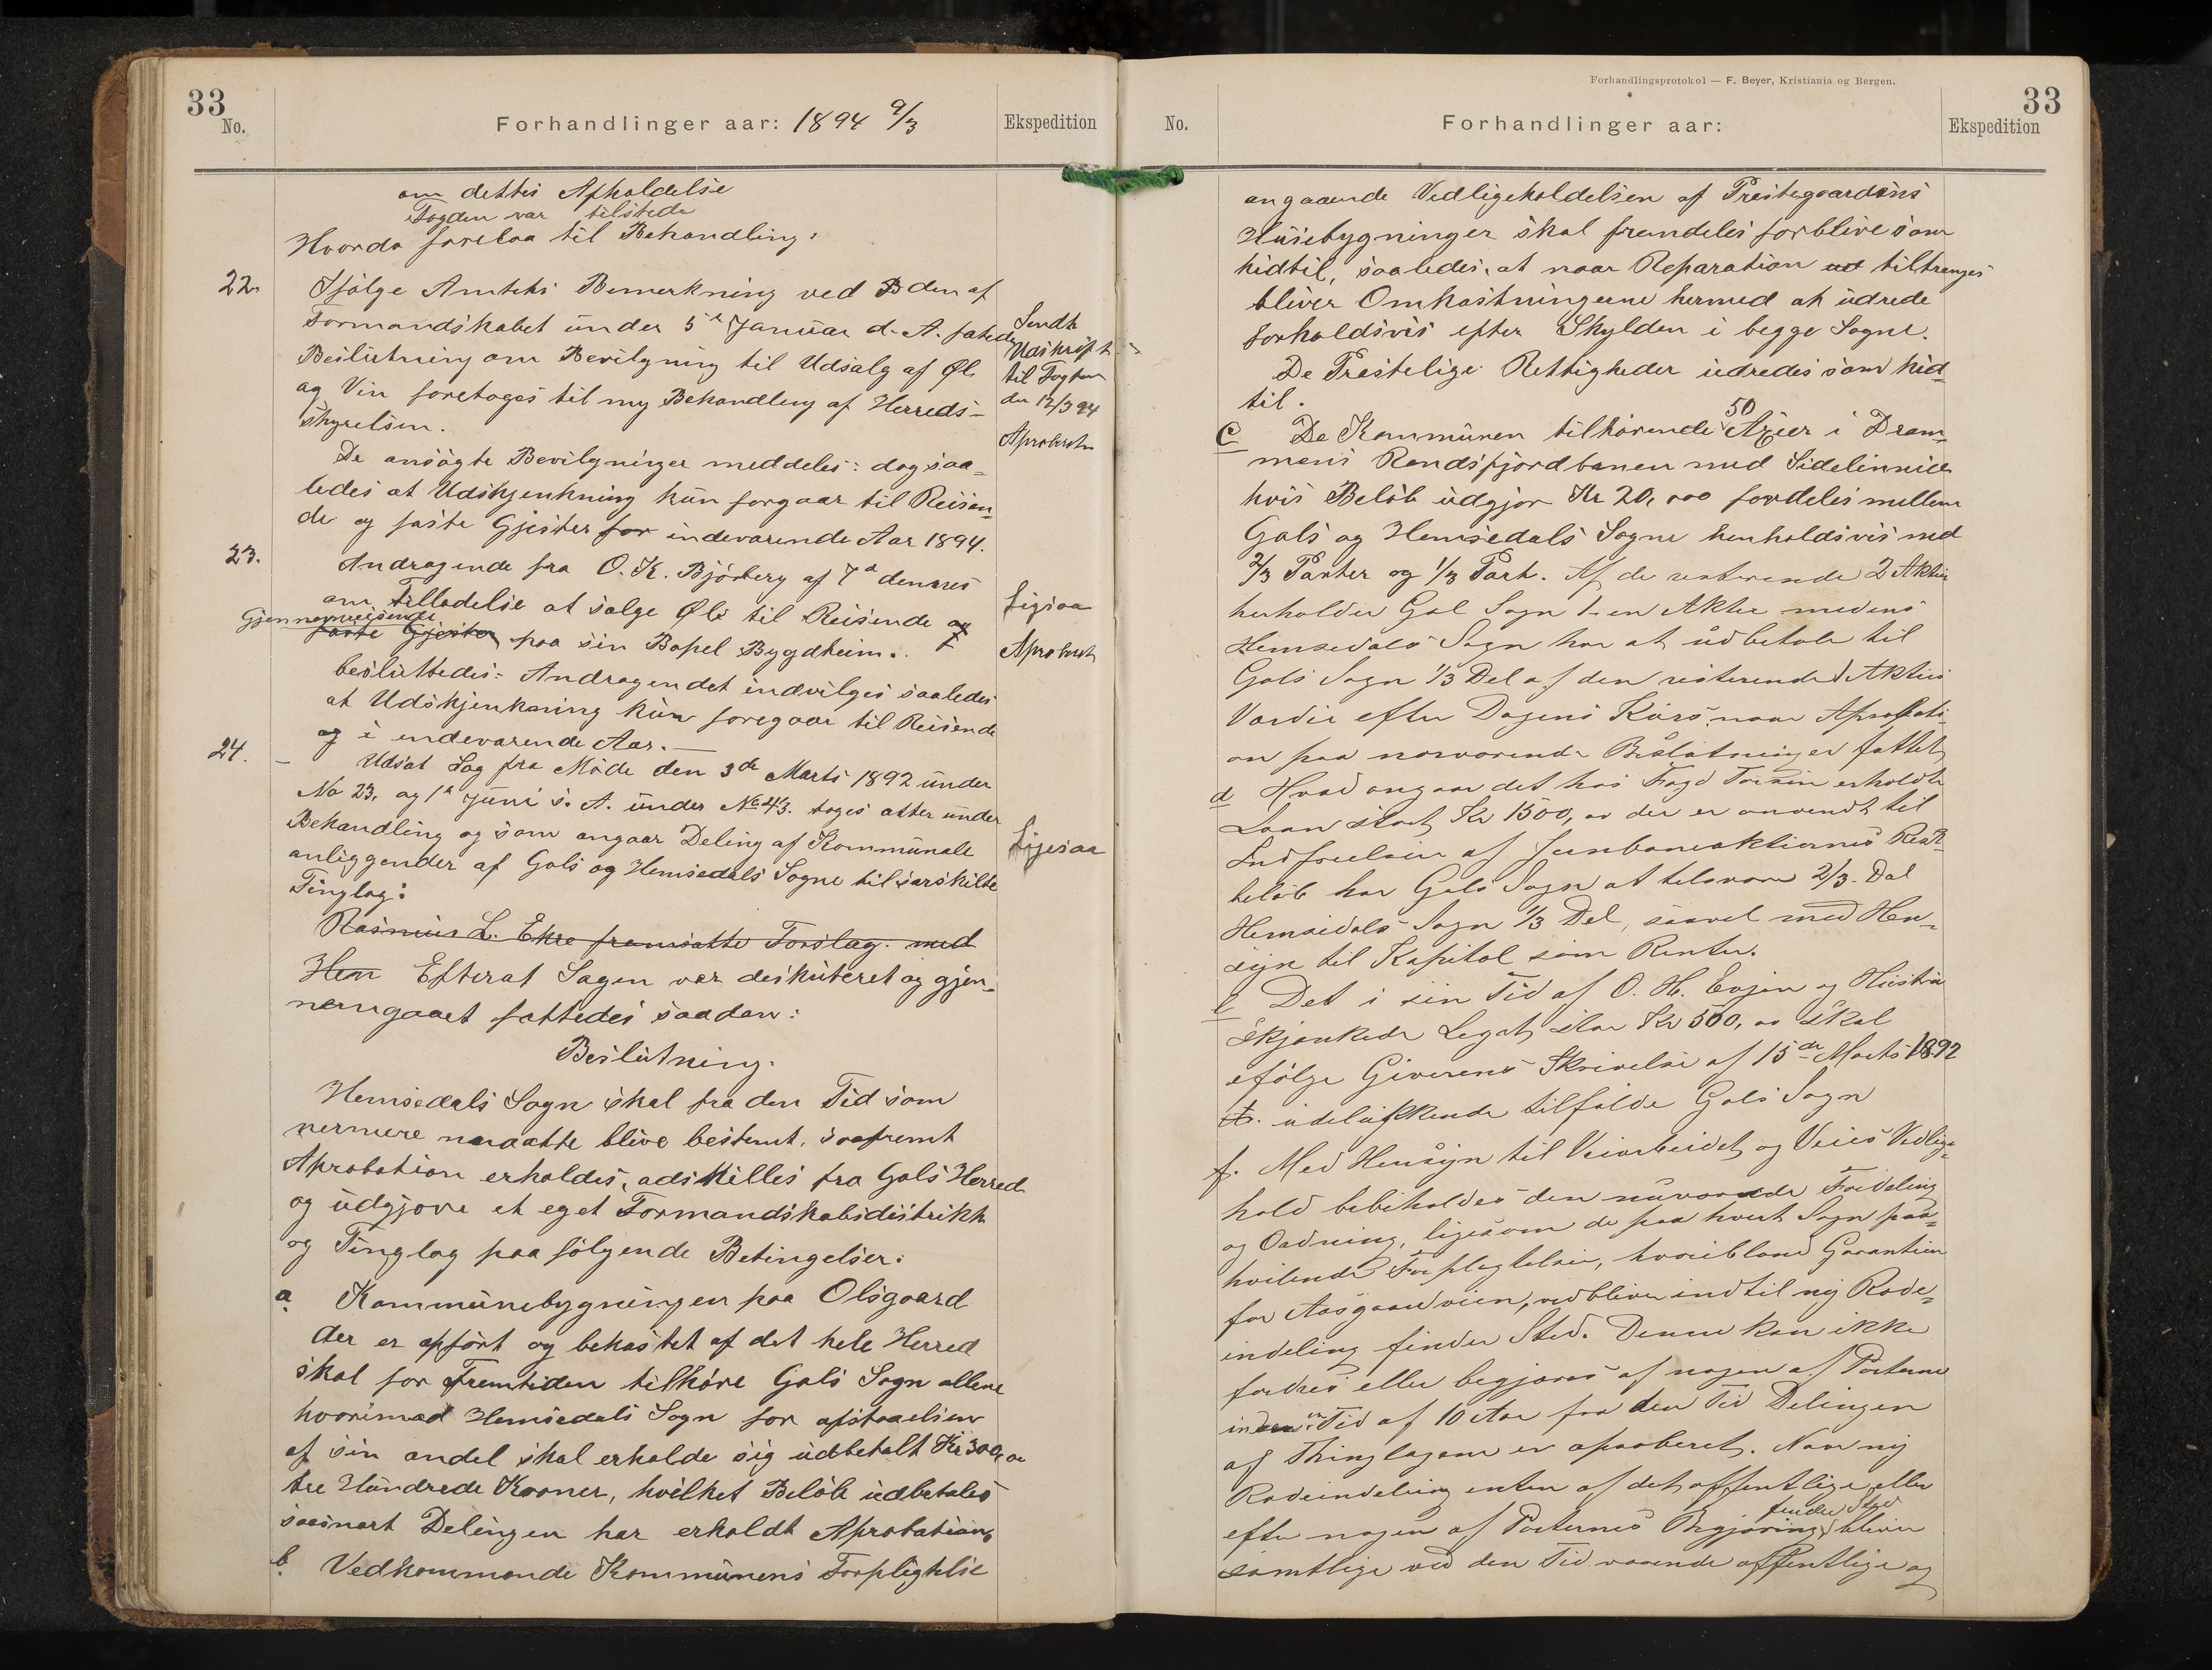 33
No.
Forhandlinger aar: 1894 9/3
Ekspedition
om dettes Afholdelse
Fogden var tilstede
Hvorda forelaa til Behandling:
22. Ifölge Amtets Bemerkning ved den af
Formandskabet under 5te Januar d. A. fatede
Beslutning om Bevilgning til Udsalg af Øl
og Vin foretages til ny Behandling af Herreds-
styrelsen.
De ansögte Bevilgninger meddeles: dog saa-
ledes at Udskjenkning kun forgaar til Reisen-
de og faste Gjester for indevarende Aar 1894.
Sendt
Udskrift
til Fogden
den 12/3 94
Aproberet
23. Andragende fra O. K. Björberg af 7d dennes
om Tilladelse at selge Øl til Reisende og
Gjennemreisende
faste Gjester paa sin Bopel Bygdheim.
besluttedes: Andragendet indvilges saaledes
at Udskjenkning kun foregaar til Reisende
og i indevarende Aar.—
Ligesaa
Aproberet
24. Udsat Sag fra Möde den 3de Marts 1892 under
No 23, og 1t Juni s. A. under No 43. toges atter under
Behandling og som angaar Deling af Kommunale
anliggender af Gols og Hemsedals Sogne til særskilte
Tinglag:
Ligesaa
Rasmus L. Ekre fremsatte Forslag. med
Hen Efterat Sagen var diskuteret og gjen-
nemgaaet fattedes saadan:
Beslutning.
Hemsedals Sogn skal fra den Tid som
nermere maatte blive bestemt, saafremt
Aprobation erholdes, adskilles fra Gols Herred
og udgjøre et eget Formandskabsdistrikt
og Tinglag paa fölgende Betingelser:
a Kommunebygningen paa Olsgaard
der er opfört og bekostet af det hele Herred
skal for Fremtiden tilhöre Gols Sogn allene
hvorimod Hemsedals Sogn for afstaaelsen
af sin andel skal erholde sig udbetalt Kr 300,00
tre Hundrede Kroner, hvilket Belöb udbetales
saasnart Delingen har erholdt Aprobation,
b. Vedkommende Kommunens Forpligtelse
Forhandlingsprotokol — F. Beyer, Kristiania og Bergen.
33
No.
Forhandlinger aar:
Ekspedition
angaaende Vedligeholdelsen af Prestegaardens
Husebygninger skal fremdeles forblive som
hidtil, saaledes, at naar Reparation ud tiltrenges
bliver Omkostningerne hermed at udrede
forholdsvis efter Skylden i begge Sogne.
De Prestelige Rettigheder udredes som hid-
til.
50
C De Kommunen tilhörende Axier i Dram-
mens Randsfjordbanen med Sidelinnier
hvis Belöb udgjör Kr 20,000 fordeles mellem
Gols og Hemsedals Sogne henholdsvis med
2/3 Parter og 1/3 Part. Af de resterende 2 Aktier
herholder Gol Sogn 1-en Aktie medens
Hemsedals Sogn har at udbetale til
Gols Sogn 1/3 Del af den resterende Akties
Værdie efter Dagens Kurs, naar Aprobati-
on paa nærværende Beslutninger fattet,
d Hvad angaar det hos Fogd erholdte
Laan stort Kr 1500,00 der er anvendt til
Indfrielsen af Jernbaneaktiernes Rest-
belöb har Gols Sogn at tilsvare 2/3 Del
Hemsedals Sogn 1/3 Del, saavel med Hen-
syn til Kapital som Renter.
e Det i sin Tid af O. H. Evjen og Hustru
skjænkede Legat stor Kr 500,00 skal
efölge Giverens Skrivelse af 15de Marts 1892
udelukkende tilfalde Gols Sogn
f. Med Hensyn til Veiarbeidet og Veies Vedlige-
hold bibeholdes den nuværende Fordeling
og Ordning, ligesom de paa hvert Sogn paa-
hvilende Forpligtelser, hvoribland Garantien
for Aasgaardveien, vedbliver indtil ny Rode-
indeling finder Sted. Denne kan ikke
fordres eller begjæres af nogen af Parterne
inden en Tid af 10 Aar fra den Tid Delingen
af Thinglagene er aproberet. Naar ny
Rodeindeling enten af det offentlige eller
finder Sted
efter nogen af Parternes Begjæring bliver
samtlige ved den Tid værende offentlige og